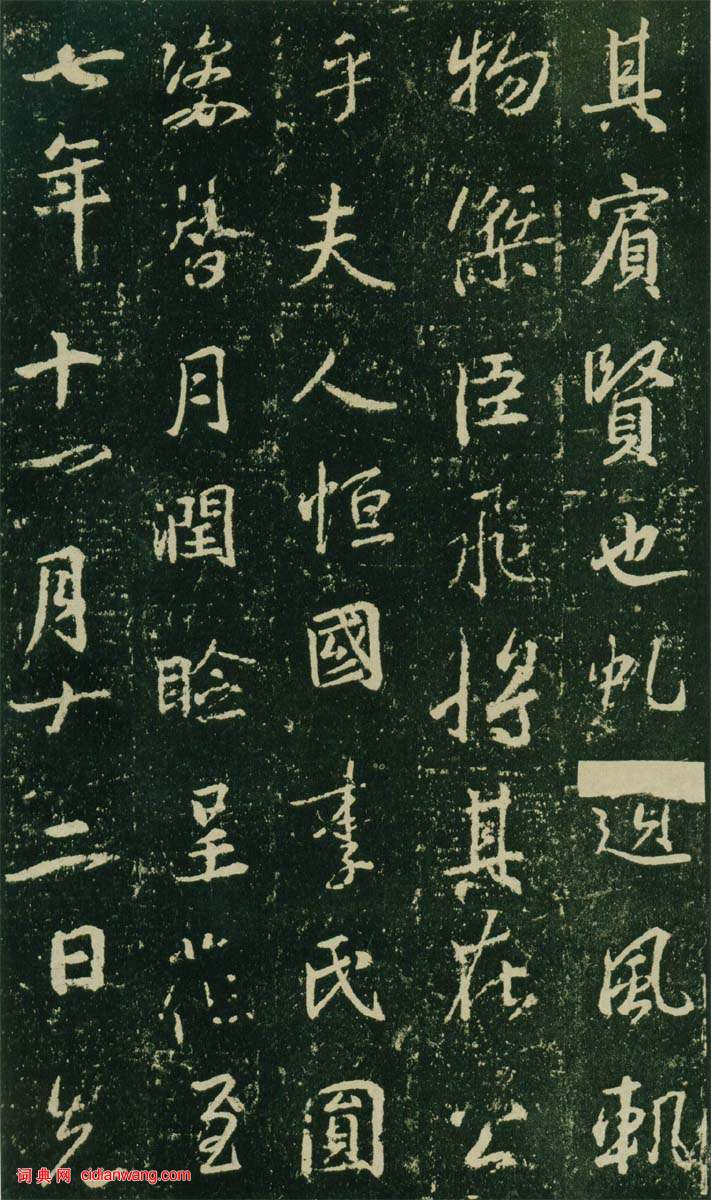 其賓賢也虬風軌
物傑臣飛將其在公
乎夫人恒國李氏圓
姿替月潤臉呈至
七年十一月十二日
词典网 cidianwang.com